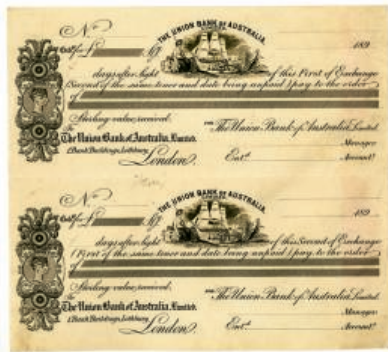 No.
THE UNION BANK OF AUSTRALIA
LIMITED
for £ 189
days after sight of this First of Exchange
(Second of the same tenor and date being unpaid) pay to the order
of
Sterling value received.
To
The Union Bank of Australia, Limited.
1 Bank Buildings, Lothbury,
London.
FOR The Union Bank of Australia Limited
Manager
Entd. Account
No.
THE UNION BANK OF AUSTRALIA
LIMITED
for £ 189
days after sight of this Second of Exchange
(First of the same tenor and date being unpaid) pay to the order
of
Sterling value received.
To
The Union Bank of Australia, Limited.
1 Bank Buildings, Lothbury,
London.
FOR The Union Bank of Australia Limited
Manager
Entd. Account